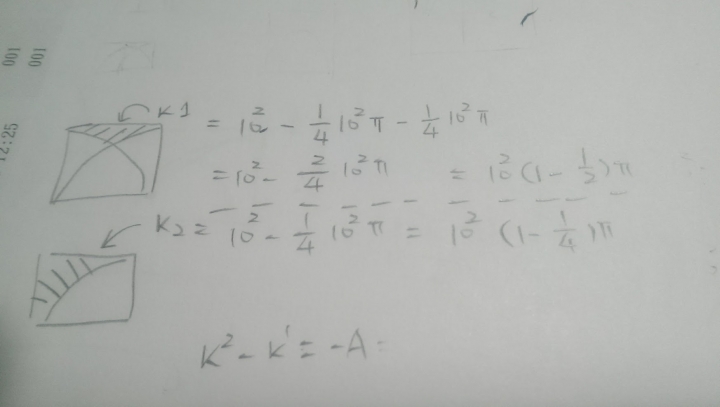 001
001
12:25
K1 = 10² - 1/4 10² π - 1/4 10² π
= 10² - 2/4 10² π = 10² (1 - 1/2) π
K2 = 10² - 1/4 10² π = 10² (1 - 1/4) π
K² - K' = -A =